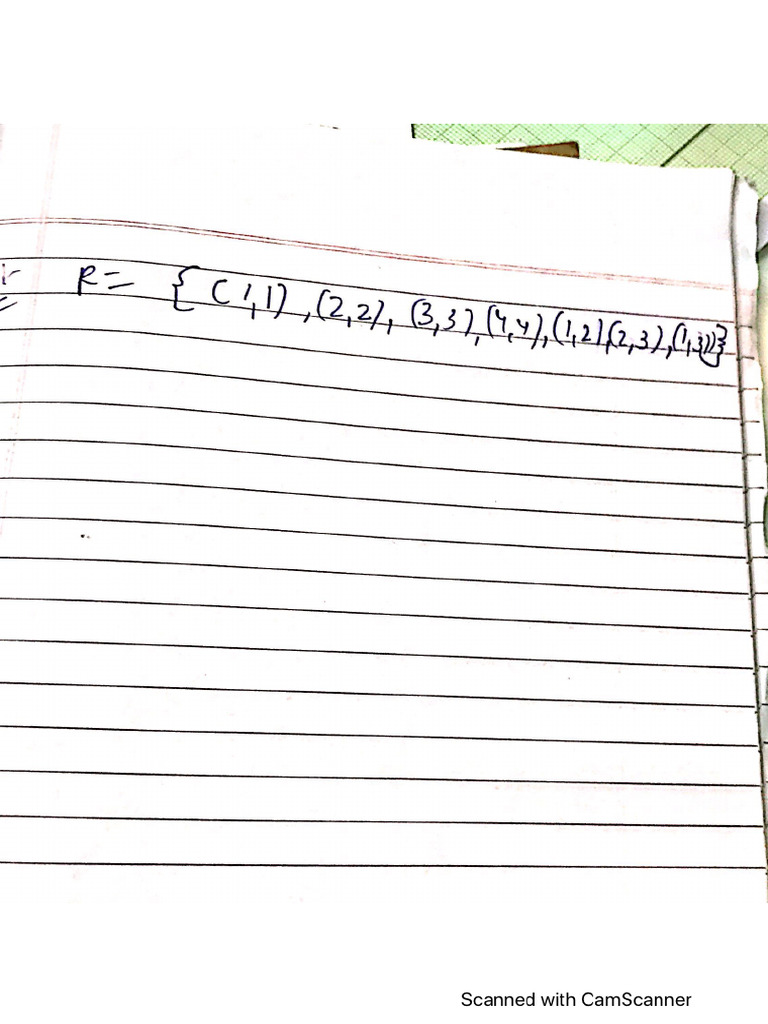 R= { (1,1) ,(2,2), (3,3),(4,4),(1,2),(2,3),(1,3)}
Scanned with CamScanner